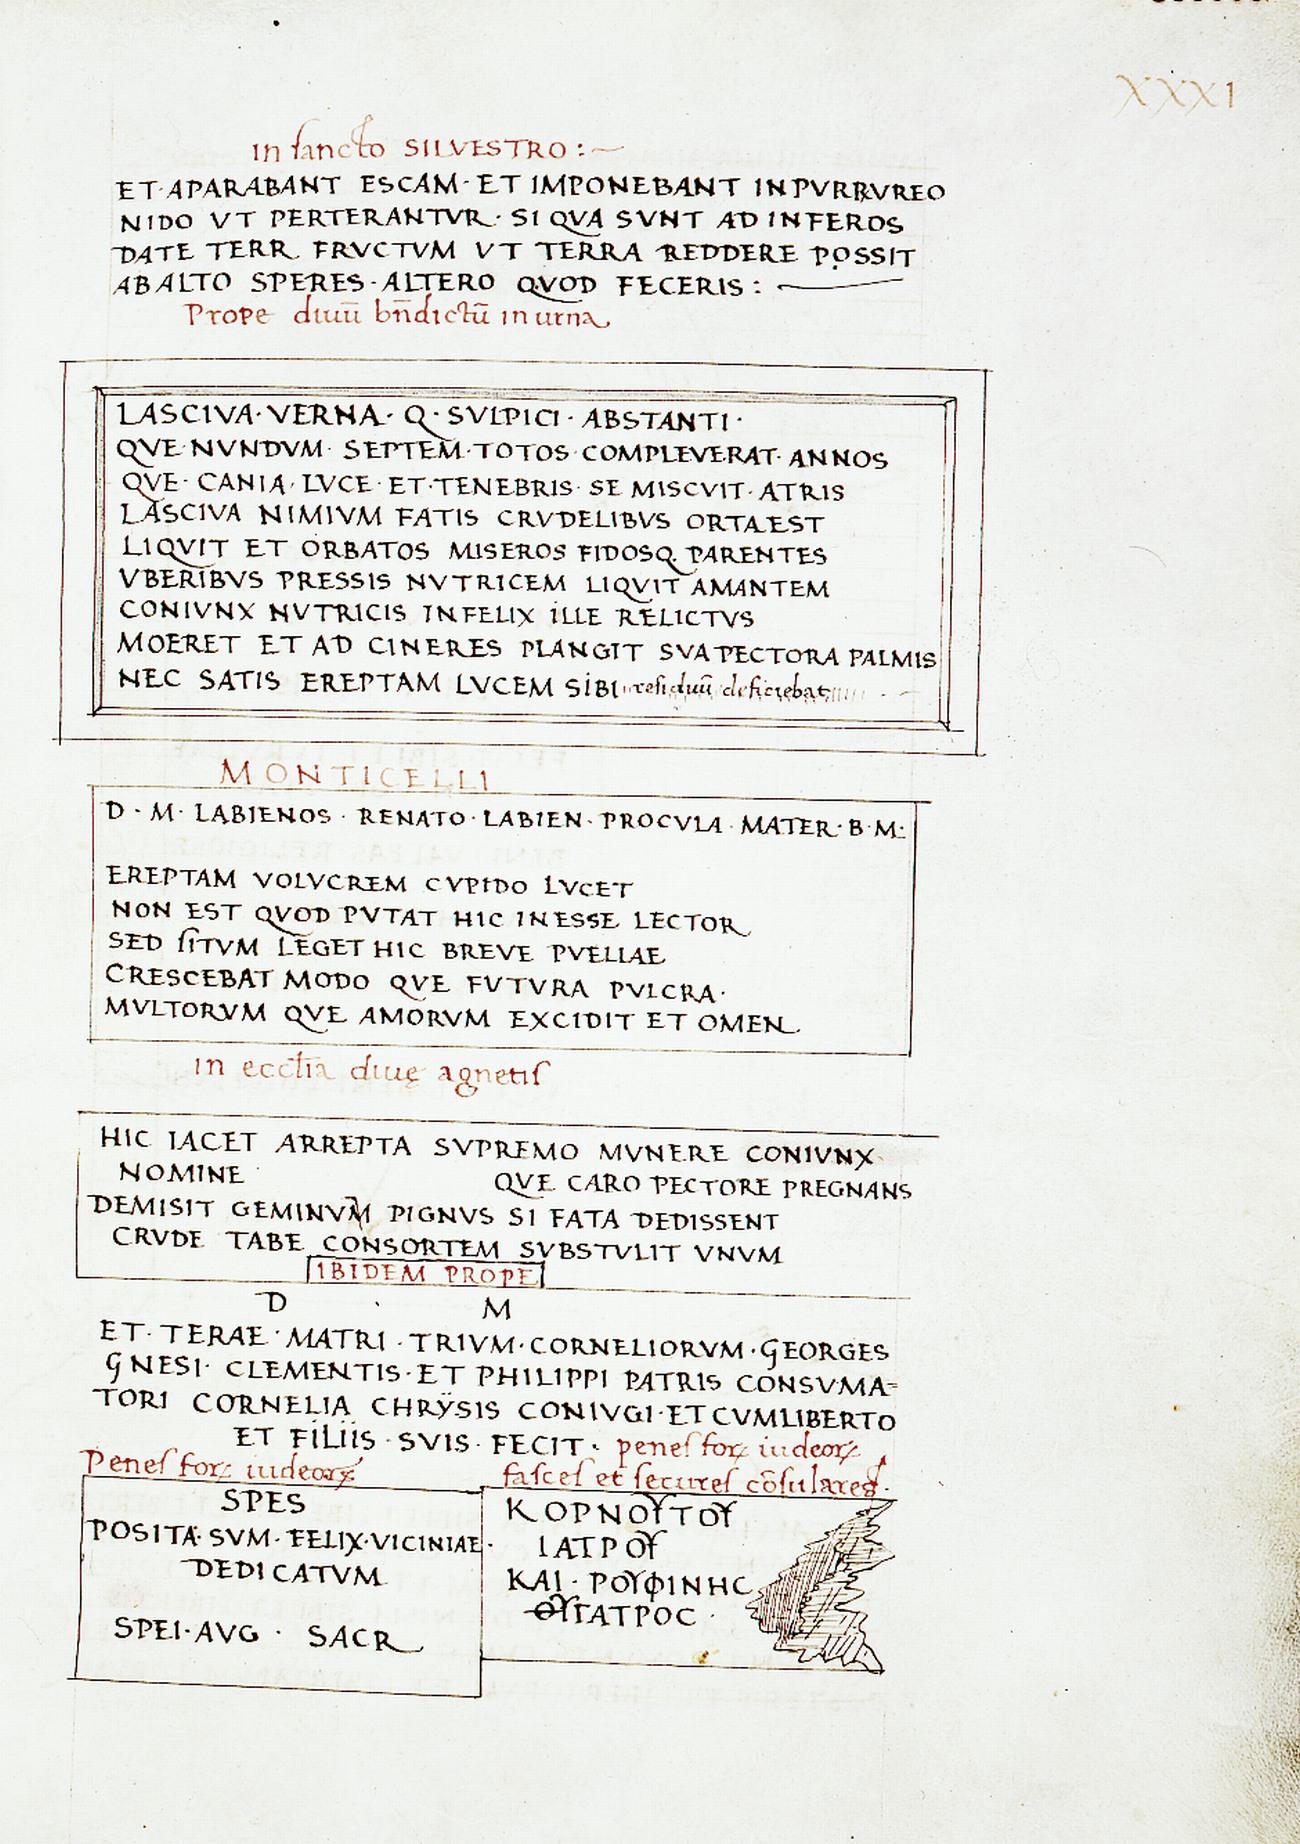 XXXI
in sancto SILVESTRO :~
ET·APARABANT ESCAM· ET IMPONEBANT IN PVRRVREO
NIDO VT PERTERANTVR· SI QVA SVNT AD INFEROS
DATE TERR FRVCTVM VT TERRA REDDERE POSSIT
AB ALTO SPERES· ALTERO QVOD FECERIS :
Prope diuū bn̄dictū in urna
LASCIVA· VERNA· Q· SVLPICI· ABSTANTI·
QVE· NVNDVM· SEPTEM· TOTOS· COMPLEVERAT· ANNOS
QVE· CANIA· LVCE· ET· TENEBRIS· SE MISCVIT· ATRIS
LASCIVA NIMIVM FATIS CRVDELIBVS ORTA EST
LIQVIT ET ORBATOS MISEROS FIDOSQ PARENTES
VBERIBVS PRESSIS NVTRICEM LIQVIT AMANTEM
CONIVNX NVTRICIS INFELIX ILLE RELICTVS
MOERET ET AD CINERES PLANGIT SVA PECTORA PALMIS
NEC SATIS EREPTAM LVCEM SIBI residuū deficiebat
MONTICELLI
D· M· LABIENOS· RENATO· LABIEN· PROCVLA· MATER· B· M:
EREPTAM VOLVCREM CVPIDO LVCET
NON EST QVOD PVTAT HIC INESSE LECTOR
SED SITVM LEGET HIC BREVE PVELLAE
CRESCEBAT MODO QVE FVTVRA PVLCRA·
MVLTORVM QVE AMORVM EXCIDIT ET OMEN
in eccl̄ia diuę agnetis
HIC IACET ARREPTA SVPREMO MVNERE CONIVNX
NOMINE QVE CARO PECTORE PREGNANS
DEMISIT GEMINVM PIGNVS SI FATA DEDISSENT
CRVDE TABE CONSORTEM SVBSTVLIT VNVM
IBIDEM PROPE
D · M
ET· TERAE· MATRI· TRIVM· CORNELIORVM· GEORGES
GNESI· CLEMENTIS· ET PHILIPPI PATRIS CONSVMA=
TORI CORNELIA CHRŸSIS CONIVGI· ET CVM LIBERTO
ET FILIIS· SVIS· FECIT· penes forꝝ iudeorꝝ
Penes forꝝ iudeorꝝ fasces et secures cōsulares·
SPES
POSITA· SVM· FELIX· VICINIAE·
DEDICATVM
SPEI· AVG· SACR
ΚΟΡΝΟΥΤΟΥ
ΙΑΤΡΟΥ
ΚΑΙ· ΡΟΥΦΙΝΗC
ΘΥΓΑΤΡΟC·